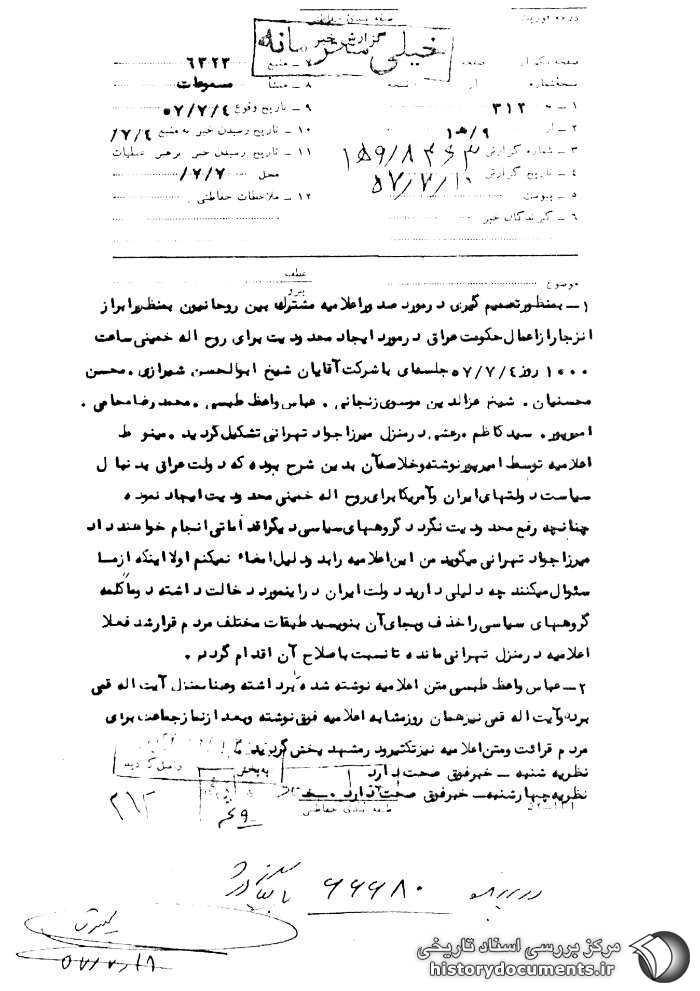 درجه فوریت
طبقه بندی حفاظتی
خیلی محرمانه
گزارش خبر
صفحه یک از صفحه
نسخه شماره از نسخه
۱ ـ به ۳۱۲
۲ ـ از ۹/ﻫ۱
۳ ـ شماره گزارش
۴ ـ تاریخ گزارش ۵۷/۷/۱۰
۵ ـ پیوست
۶ ـ گیرندگان خبر
۷ ـ منبع ۶۳۲۳
۸ ـ منشأ مسموعات
۹ ـ تاریخ وقوع ۵۷/۷/۴
۱۰ ـ تاریخ رسیدن خبر به منبع ۷/۴/
۱۱ ـ تاریخ رسیدن خبر برهبر عملیات
محل ۷/۷/
۱۲ ـ ملاحظات حفاظتی
موضوع
عطف
پیرو
۱ـ بمنظور تصمیم گیری در مورد صدور اعلامیه مشترک بین روحانیون بمنظور ابراز
انزجار از اعمال حکومت عراق در مورد ایجاد محدودیت برای روح اله خمینی ساعت
۱۰۰۰ روز ۵۷/۷/۴ جلسه‌ای با شرکت آقایان شیخ ابوالحسن شیرازی ۰ محسن
محسنیان ۰ شیخ عزالدین موسوی زنجانی ۰ عباس واعظ طبسی ۰ محمد رضا محامی ۰
امیرپور ۰ سید کاظم مرعشی در منزل میرزا جواد تهرانی تشکیل گردید ۰ مینوط
اعلامیه توسط امیرپور نوشته و خلاصه آن بدین شرح بوده که دولت عراق بدنبال
سیاست دولتهای ایران و آمریکا برای روح اله خمینی محدودیت ایجاد نموده
چنانچه رفع محدودیت نگردد گروههای سیاسی دیگر اقداماتی انجام خواهند داد
میرزا جواد تهرانی میگوید من این اعلامیه را بدو دلیل امضاء نمیکنم اولا اینکه از ما
سئوال میکنند چه دلیلی دارید دولت ایران در اینمورد دخالت داشته دوماً کلمه
گروههای سیاسی را حذف و بجای آن بنویسید طبقات مختلف مردم قرار شد فعلا
اعلامیه در منزل تهرانی مانده تا نسبت باصلاح آن اقدام گردد ۰
۲ـ عباس واعظ طبسی متن اعلامیه نوشته شده را برداشته و عینا بمنزل آیت اله قمی
برده و آیت اله قمی نیز همان روز مشابه اعلامیه فوق نوشته و بعد از نماز جماعت برای
مردم قرائت و متن اعلامیه نیز تکثیر و در مشهد پخش گردید
نظریه شنبه ـ خبر فوق صحت دارد
نظریه چهارشنبه ـ خبر فوق صحت دارد ۰
واصل گردید
به بخش
طبقه بندی حفاظتی
۲۱۲
۶۹
۶۶۶۸۰
بایگانی
مرکز بررسی اسناد تاریخی
historydocuments.ir